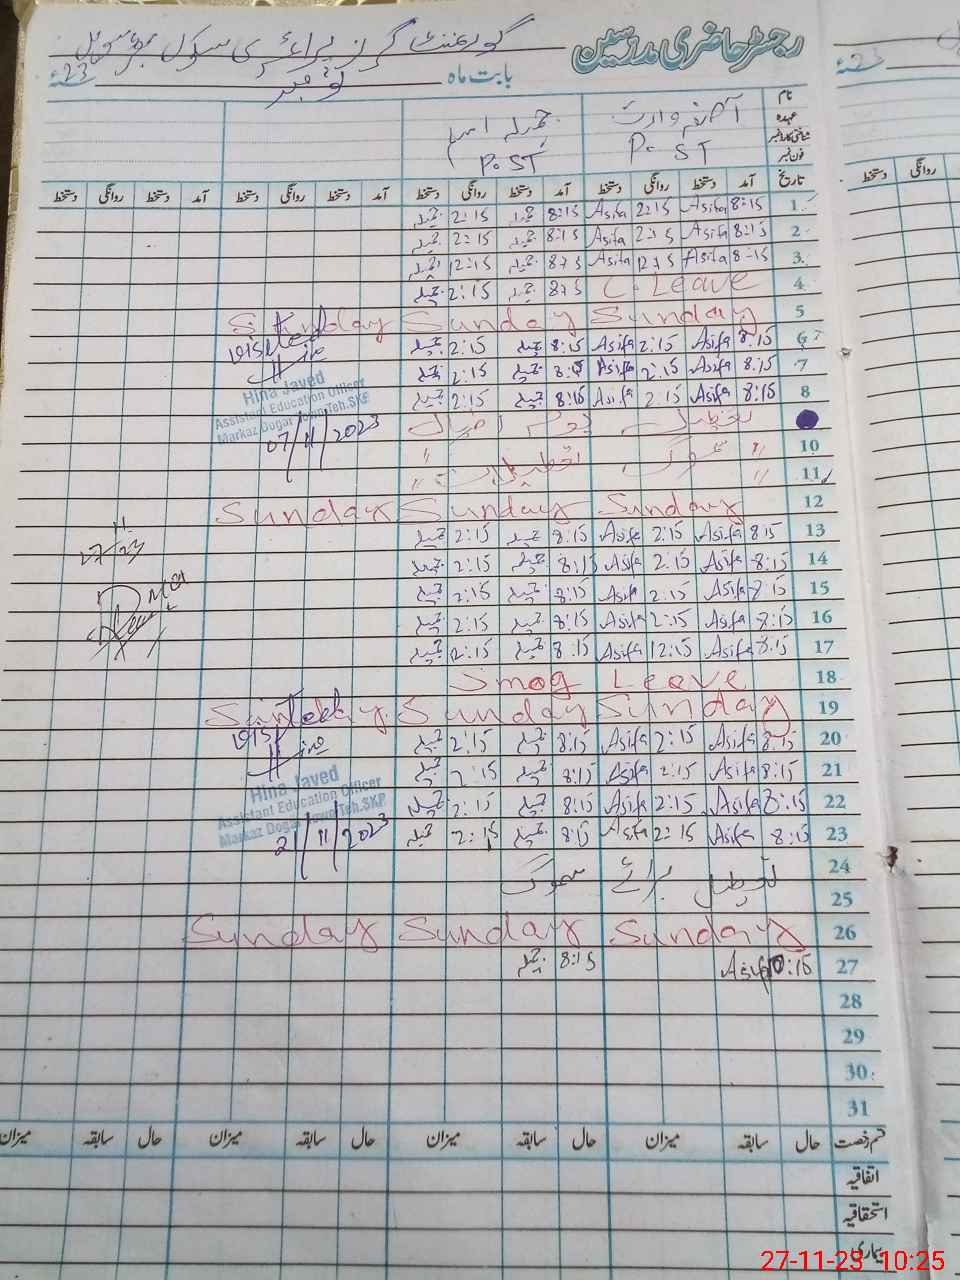 رجسٹر حاضری مدرسین گورنمنٹ گرلز پرائمری سکول
بابت ماہ نومبر 23ء
نام آصفہ وارث
عہدہ
شناختی کارڈ نمبر
فون نمبر P. ST P. ST
تاریخ آمد دستخط روانگی دستخط آمد دستخط روانگی دستخط آمد دستخط روانگی دستخط آمد دستخط روانگی دستخط
1 8:15 Asifa 2:15 Asifa 8:15 جمیلہ 2:15 جمیلہ
2 8:15 Asifa 2:15 Asifa 8:15 جمیلہ 2:15 جمیلہ
3 8:15 Asifa 12:15 Asifa 8:15 جمیلہ 12:15 جمیلہ
4 C. Leave 8:15 جمیلہ 2:15 جمیلہ
5 Sunday Sunday Sunday
6 8:15 Asifa 2:15 Asifa 8:15 جمیلہ 2:15 جمیلہ
7 8:15 Asifa 2:15 Asifa 8:15 جمیلہ 2:15 جمیلہ
8 8:15 Asifa 2:15 Asifa 8:15 جمیلہ 2:15 جمیلہ
Hina Javed
Assistant Education Officer
Markaz Dogar Town Teh.SKP
07/11/2023
تعطیل یوم اقبال
10 " سموگ تعطیلات "
11 " "
12 Sunday Sunday Sunday
13 8:15 Asifa 2:15 Asifa 8:15 جمیلہ 2:15 جمیلہ
14 8:15 Asifa 2:15 Asifa 8:15 جمیلہ 2:15 جمیلہ
15 8:15 Asifa 2:15 Asifa 8:15 جمیلہ 2:15 جمیلہ
16 8:15 Asifa 2:15 Asifa 8:15 جمیلہ 2:15 جمیلہ
17 8:15 Asifa 12:15 Asifa 8:15 جمیلہ 12:15 جمیلہ
27/11/23
18 Smog Leave
19 Sunday Sunday Sunday
20 8:15 Asifa 2:15 Asifa 8:15 جمیلہ 2:15 جمیلہ
21 8:15 Asifa 2:15 Asifa 8:15 جمیلہ 2:15 جمیلہ
22 8:15 Asifa 2:15 Asifa 8:15 جمیلہ 2:15 جمیلہ
23 8:15 Asifa 2:15 Asifa 8:15 جمیلہ 2:15 جمیلہ
Hina Javed
Assistant Education Officer
Markaz Dogar Town Teh.SKP
21/11/2023
24 تعطیل برائے سموگ
25
26 Sunday Sunday Sunday
27 Asifa 8:15 جمیلہ
28
29
30
31
قسم رخصت حال سابقہ میزان حال سابقہ میزان حال سابقہ میزان حال سابقہ میزان
اتفاقیہ
استحقاقیہ
بیماری
27-11-23 10:25
روانگی دستخط